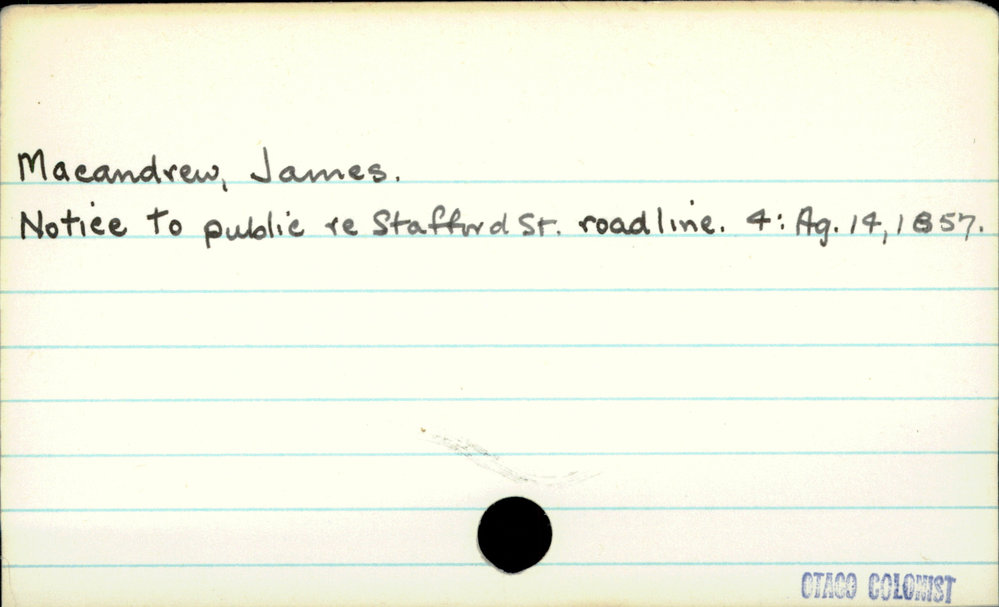 Macandrew, James.
Notice to public re Stafford St. roadline. 4: Ag. 14, 1857.
OTAGO COLONIST